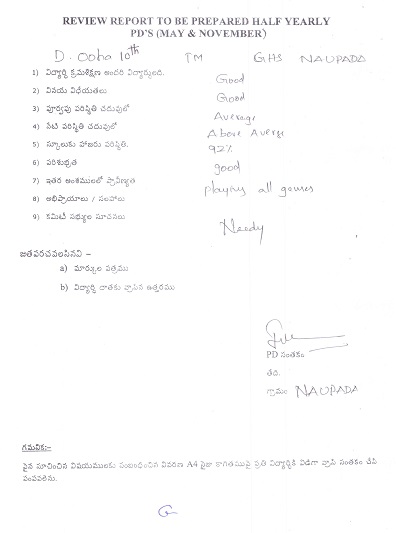 REVIEW REPORT TO BE PREPARED HALF YEARLY
PD'S (MAY & NOVEMBER)
D. Ooha 10th TM GHS NAUPADA
1) విద్యార్థి క్రమశిక్షణ అందరి విద్యార్థులది. Good
2) వినయ విధేయతలు Good
3) పూర్వపు పరిస్థితి చదువులో Average
4) నేటి పరిస్థితి చదువులో Above Averge
5) స్కూలుకు హాజరు పరిస్థితి. 92%
6) పరిశుభ్రత good
7) ఇతర అంశములలో ప్రావీణ్యత playing all games
8) అభిప్రాయాలు / సలహాలు
9) కమిటీ సభ్యుల సూచనలు Needy
జతపరచవలసినవి –
a) మార్కుల పత్రము
b) విద్యార్థి దాతకు వ్రాసిన ఉత్తరము
PD సంతకం
తేది.
గ్రామం NAUPADA
గమనిక:–
పైన సూచించిన విషయములకు సంబంధించిన వివరణ A4 సైజు కాగితముపై ప్రతి విద్యార్థికి విడిగా వ్రాసి సంతకం చేసి
పంపవలెను.